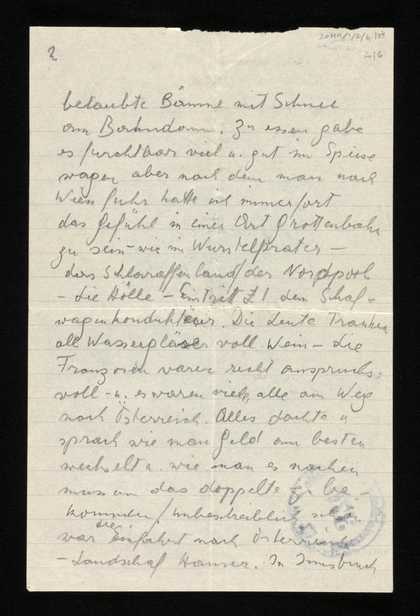 2
216
belaubte Bäume mit Schnee
am Bahndamm. Zu essen gabe
es furchtbar viel u. gut im Speise
wagen aber nach dem man nach
Wien fuhr hatte ich immerfort
das Gefühl in einer Art Grottenbahn
zu sein – wie im Wurstelprater –
das Schlaraffenland / der Nordpool
– die Hölle – Eintritt £1 dem Schlaf-
wagenkondukteur. Die Leute tranken
alle Wassergläser voll Wein – die
Franzosen waren recht anspruchs-
voll – u. es waren viele, alle am Weg
nach Österreich. Alles dachte u
sprach wie man Geld am besten
wechselt u. wie man es machen
muss um das doppelte zu be-
kommen / unbeschreiblich schön
war die Einfahrt nach Österreich
– Landschaft Häuser. In Innsbruck